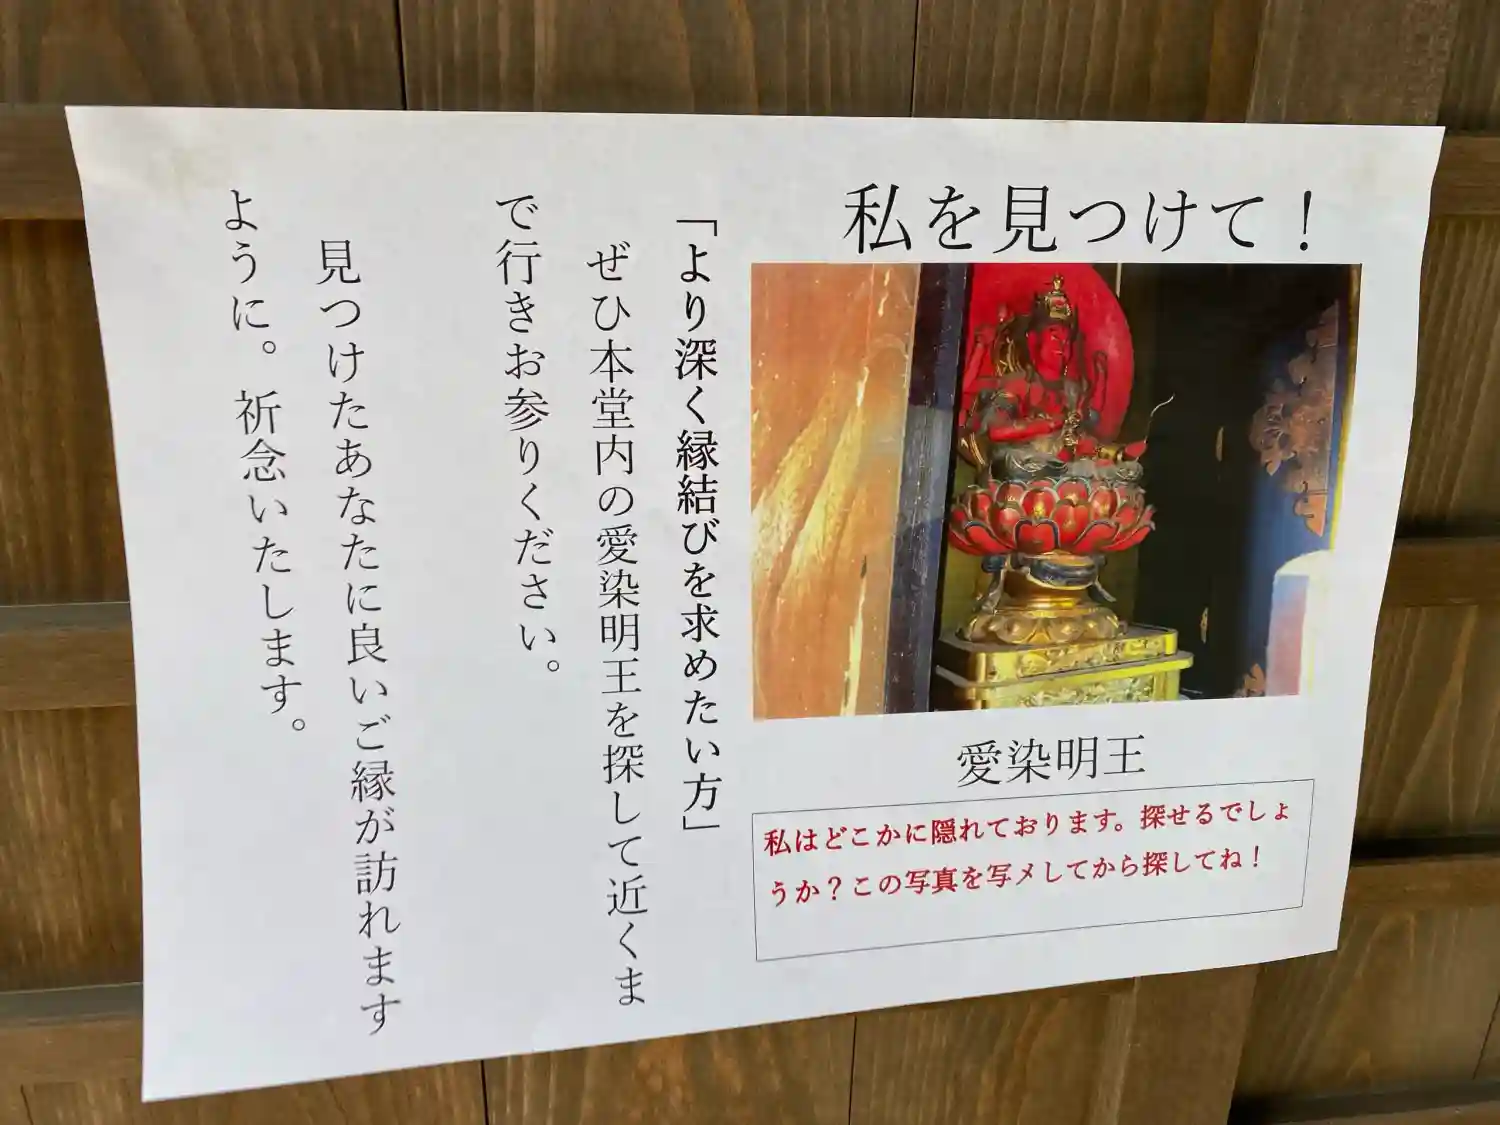 私を見つけて！
愛染明王
私はどこかに隠れております。探せるでしょ
うか？この写真を写メしてから探してね！
「より深く縁結びを求めたい方」
ぜひ本堂内の愛染明王を探して近くま
で行きお参りください。
見つけたあなたに良いご縁が訪れます
ように。祈念いたします。